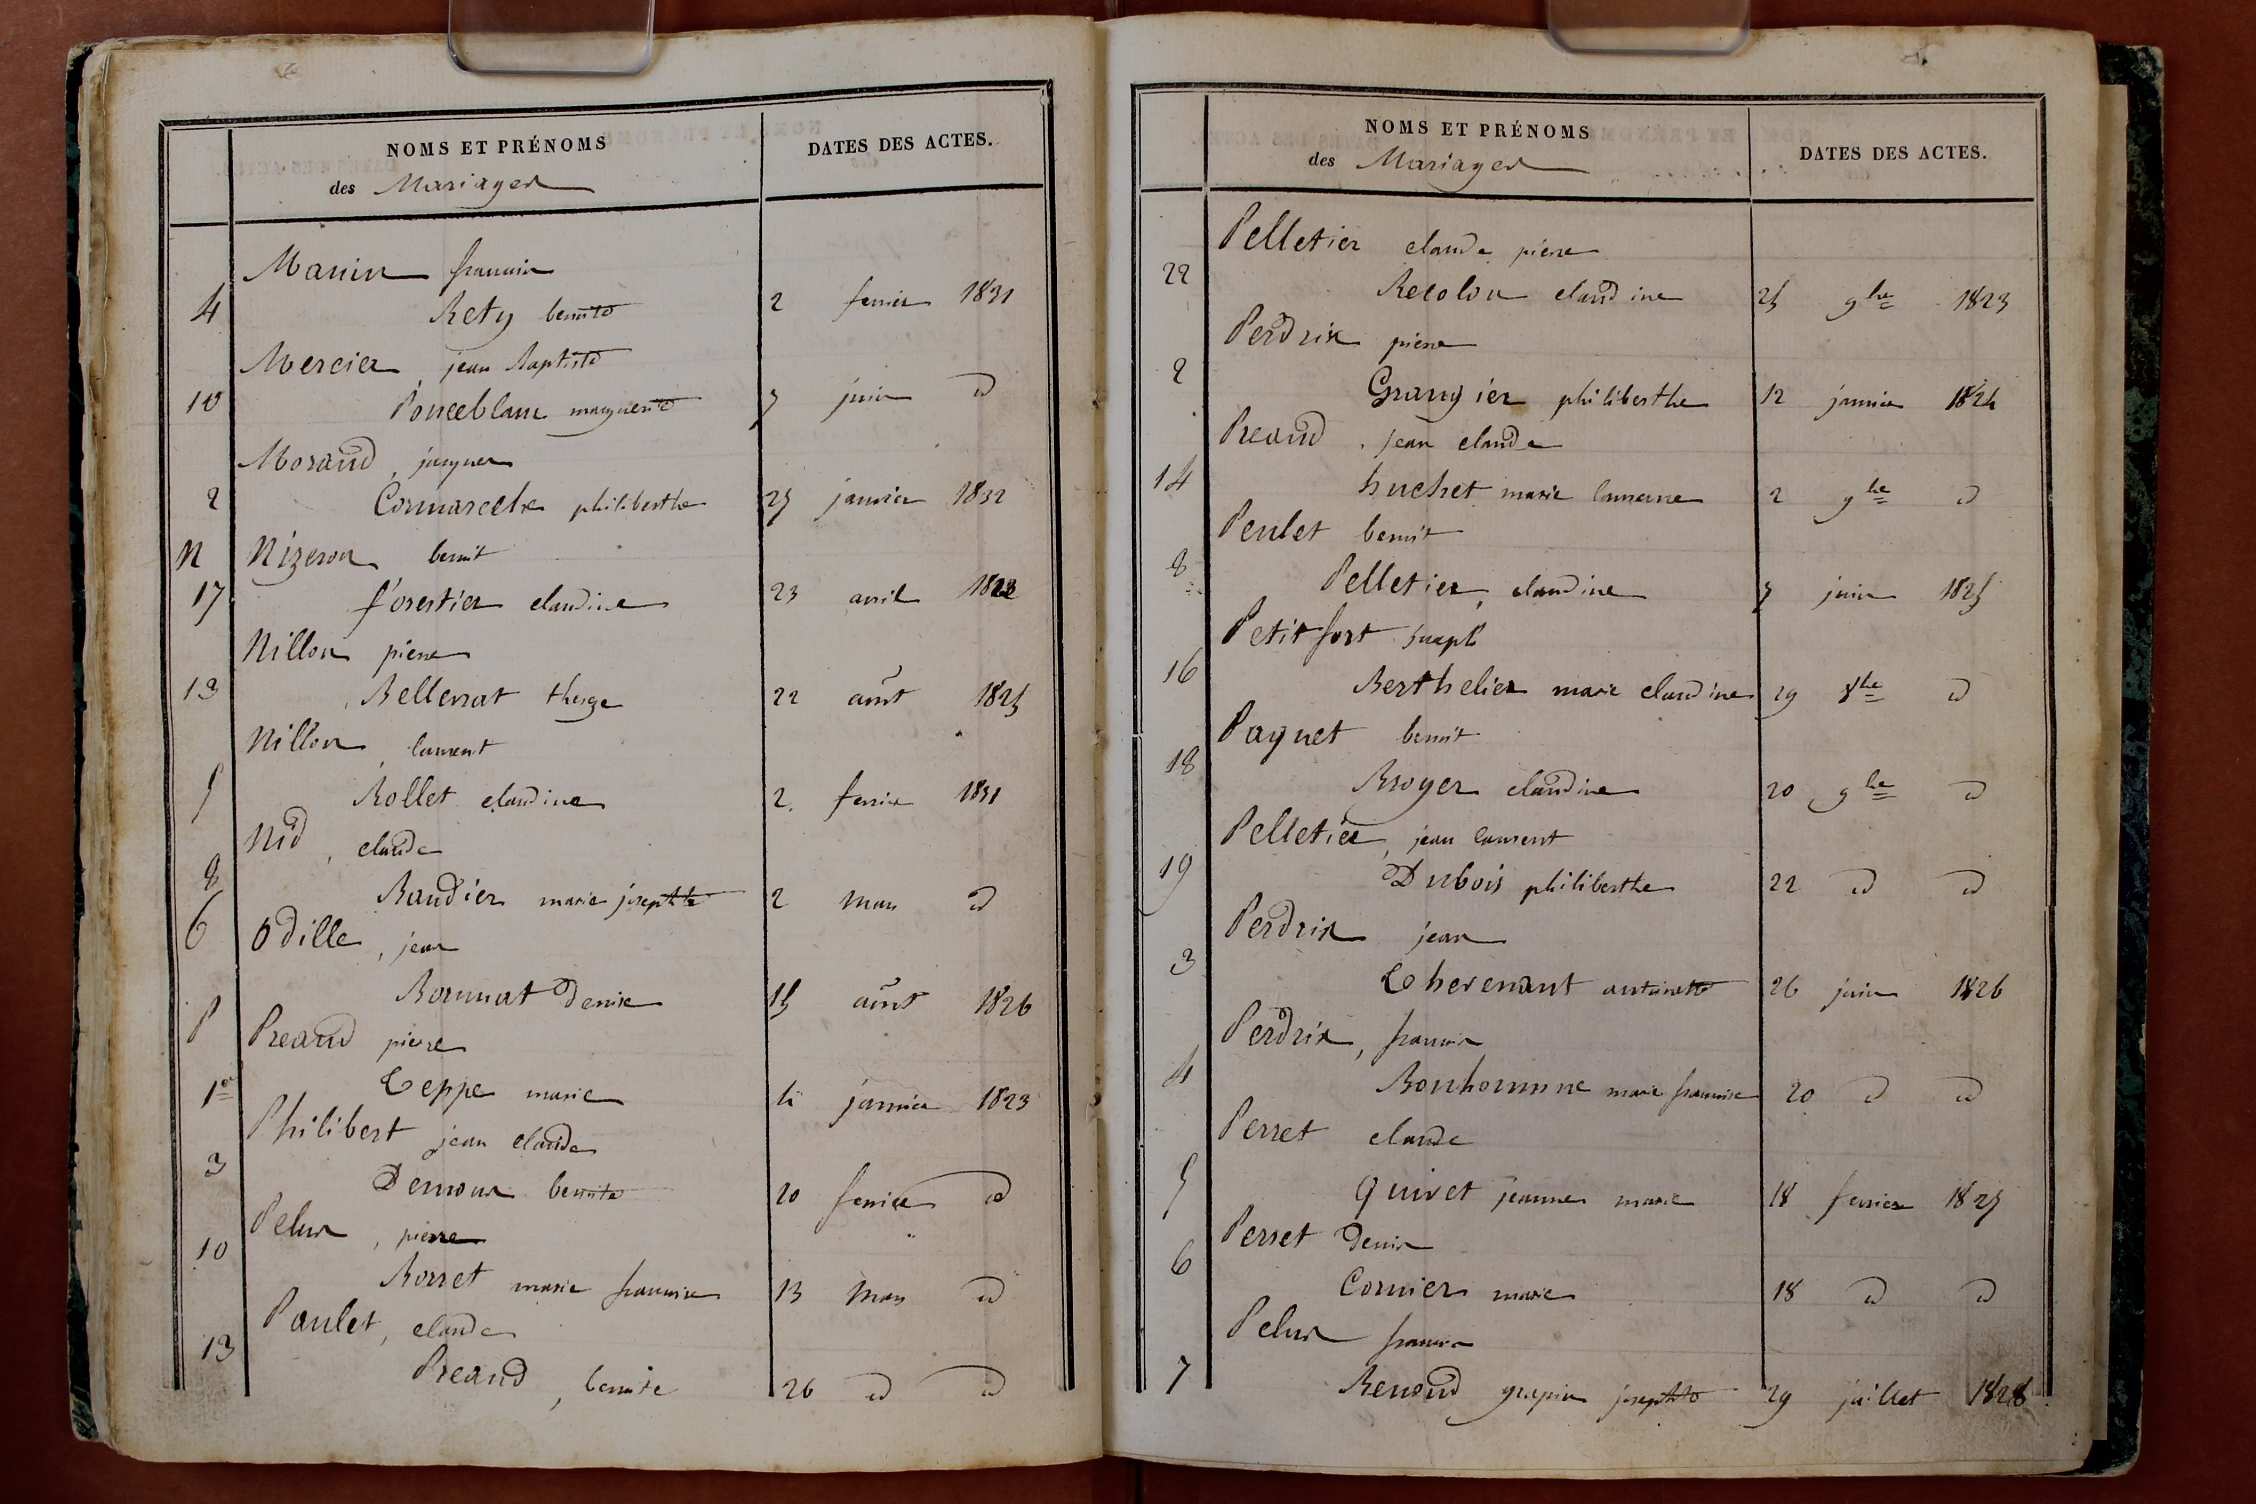 NOMS ET PRÉNOMS
des Mariages
DATES DES ACTES.
Manin francois
4 Rety benoite 2 fevrier 1831
Mercier, jean Baptiste
10 Ponceblanc marguerite 7 juin id
Morand, jacques
2 Conmarcelx philiberthe 25 janvier 1832
N Nizeron benoit
17 forestier claudine 23 avril 1823
Nillon pierre
13 Bellenat 22 aout 1825
Nillon, laurent
5 Rollet claudine 2 fevrier 1831
Nid, claude
8 Baudier marie josephte 2 mars id
6 Odille, jean
Bonnat Denise 15 aout 1826
P Preaud pierre
1er Teppe marie 4 janvier 1823
Philibert jean claude
3 Demour benoite 20 fevrier id
Pelus, pierre
10 Borret marie francoise 13 mars id
Paulet, claude
13 Preaud, benoite 26 id id
NOMS ET PRÉNOMS
des Mariages
DATES DES ACTES.
Pelletier claude pierre
22 Recolon claudine 25 9bre 1823
Perdrix pierre
2 Grangier philiberthe 12 janvier 1824
Preaud, jean claude
14 huchet marie 2 9bre id
Peulet benoit
8 Pelletier, claudine 7 juin 1825
Petitfort
16 Berthelier marie claudine 29 8bre id
Paquet benoit
18 Broyer claudine 20 9bre id
Pelletier, jean laurent
19 Dubois philiberthe 22 id id
Perdrix jean
3 Thevenant antoinette 26 juin 1826
Perdrix, francois
4 Bonhomme marie francoise 20 id id
Perret claude
5 Guivet jeanne marie 18 fevrier 1825
Perret Denis
6 Cornier marie 18 id id
Pelus francois
7 Renoud grapin josephte 29 juillet 1828